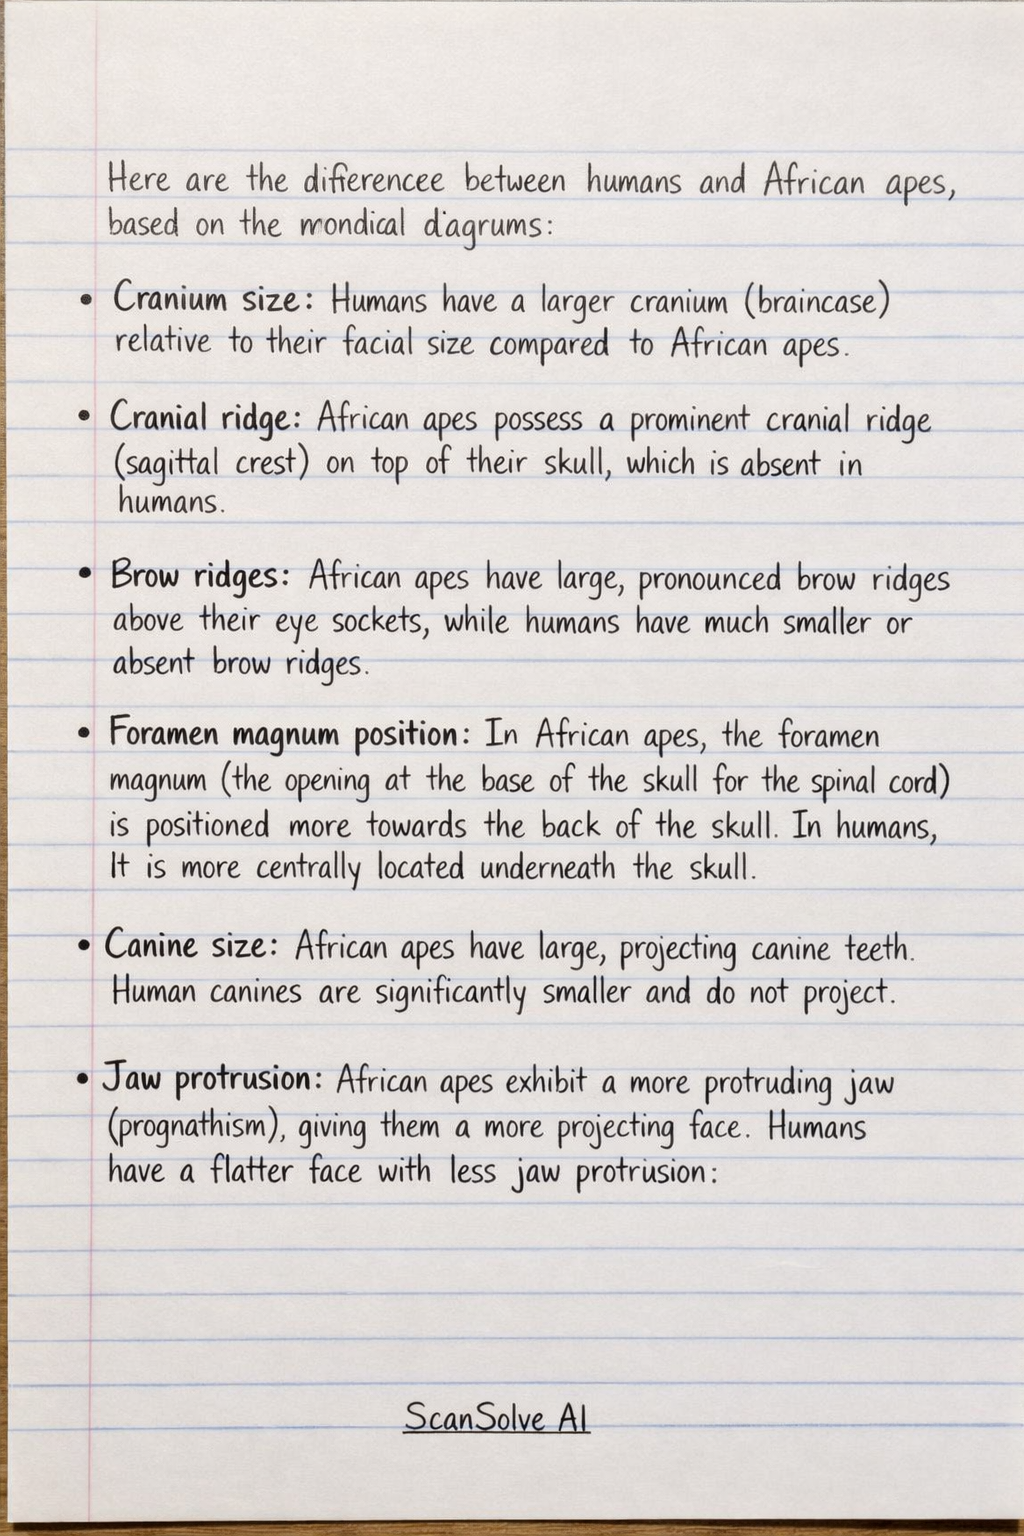 Here are the differencee between humans and African apes,
based on the mondical diagrums:
• Cranium size: Humans have a larger cranium (braincase)
relative to their facial size compared to African apes.
• Cranial ridge: African apes possess a prominent cranial ridge
(sagittal crest) on top of their skull, which is absent in
humans.
• Brow ridges: African apes have large, pronounced brow ridges
above their eye sockets, while humans have much smaller or
absent brow ridges.
• Foramen magnum position: In African apes, the foramen
magnum (the opening at the base of the skull for the spinal cord)
is positioned more towards the back of the skull. In humans,
It is more centrally located underneath the skull.
• Canine size: African apes have large, projecting canine teeth.
Human canines are significantly smaller and do not project.
• Jaw protrusion: African apes exhibit a more protruding jaw
(prognathism), giving them a more projecting face. Humans
have a flatter face with less jaw protrusion:
ScanSolve AI